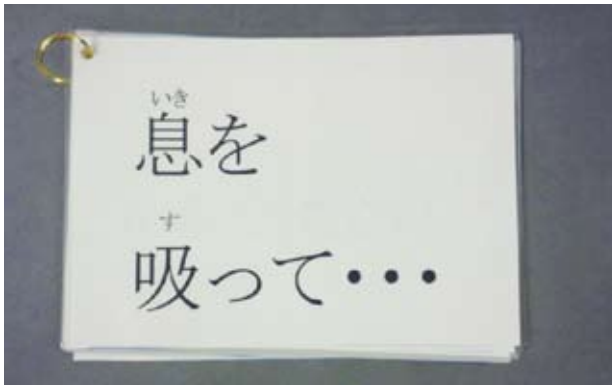 いき
息を
す
吸って・・・